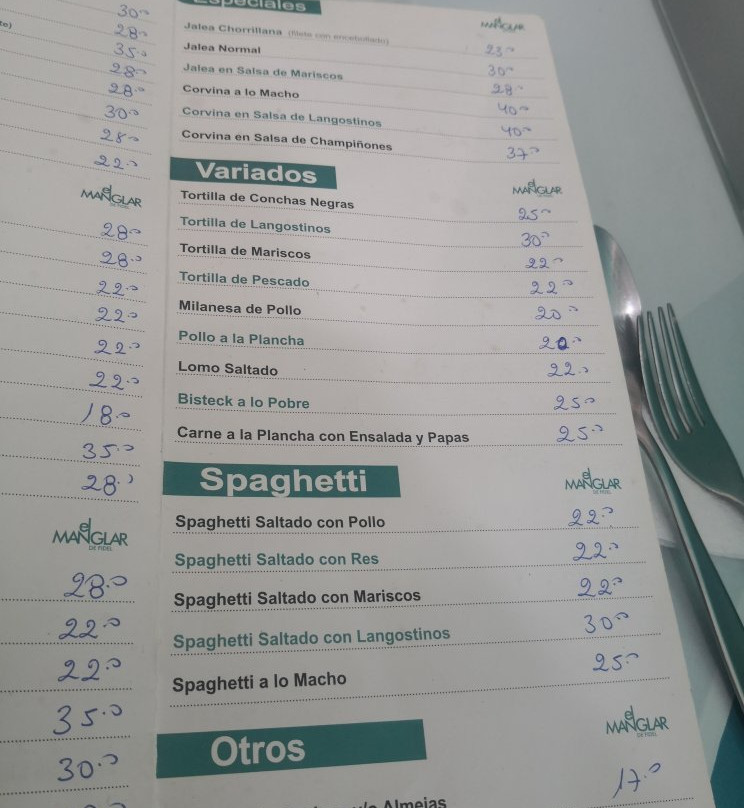 30.00
28.00
35.00
28.00
28.00
30.00
28.00
22.00
el MANGLAR
28.00
28.00
22.00
22.00
22.00
22.00
18.00
35.00
28.00
el MANGLAR
DE FIDEL
28.00
22.00
22.00
35.00
30.00
Especiales el MANGLAR
Jalea Chorrillana 23.00
Jalea Normal 30.00
Jalea en Salsa de Mariscos 28.00
Corvina a lo Macho 40.00
Corvina en Salsa de Langostinos 40.00
Corvina en Salsa de Champiñones 37.00
Variados el MANGLAR
Tortilla de Conchas Negras 25.00
Tortilla de Langostinos 30.00
Tortilla de Mariscos 22.00
Tortilla de Pescado 22.00
Milanesa de Pollo 20.00
Pollo a la Plancha 20.00
Lomo Saltado 22.00
Bisteck a lo Pobre 25.00
Carne a la Plancha con Ensalada y Papas 25.00
Spaghetti el MANGLAR
DE FIDEL
Spaghetti Saltado con Pollo 22.00
Spaghetti Saltado con Res 22.00
Spaghetti Saltado con Mariscos 22.00
Spaghetti Saltado con Langostinos 30.00
Spaghetti a lo Macho 25.00
Otros el MANGLAR
DE FIDEL
Almejas 17.00